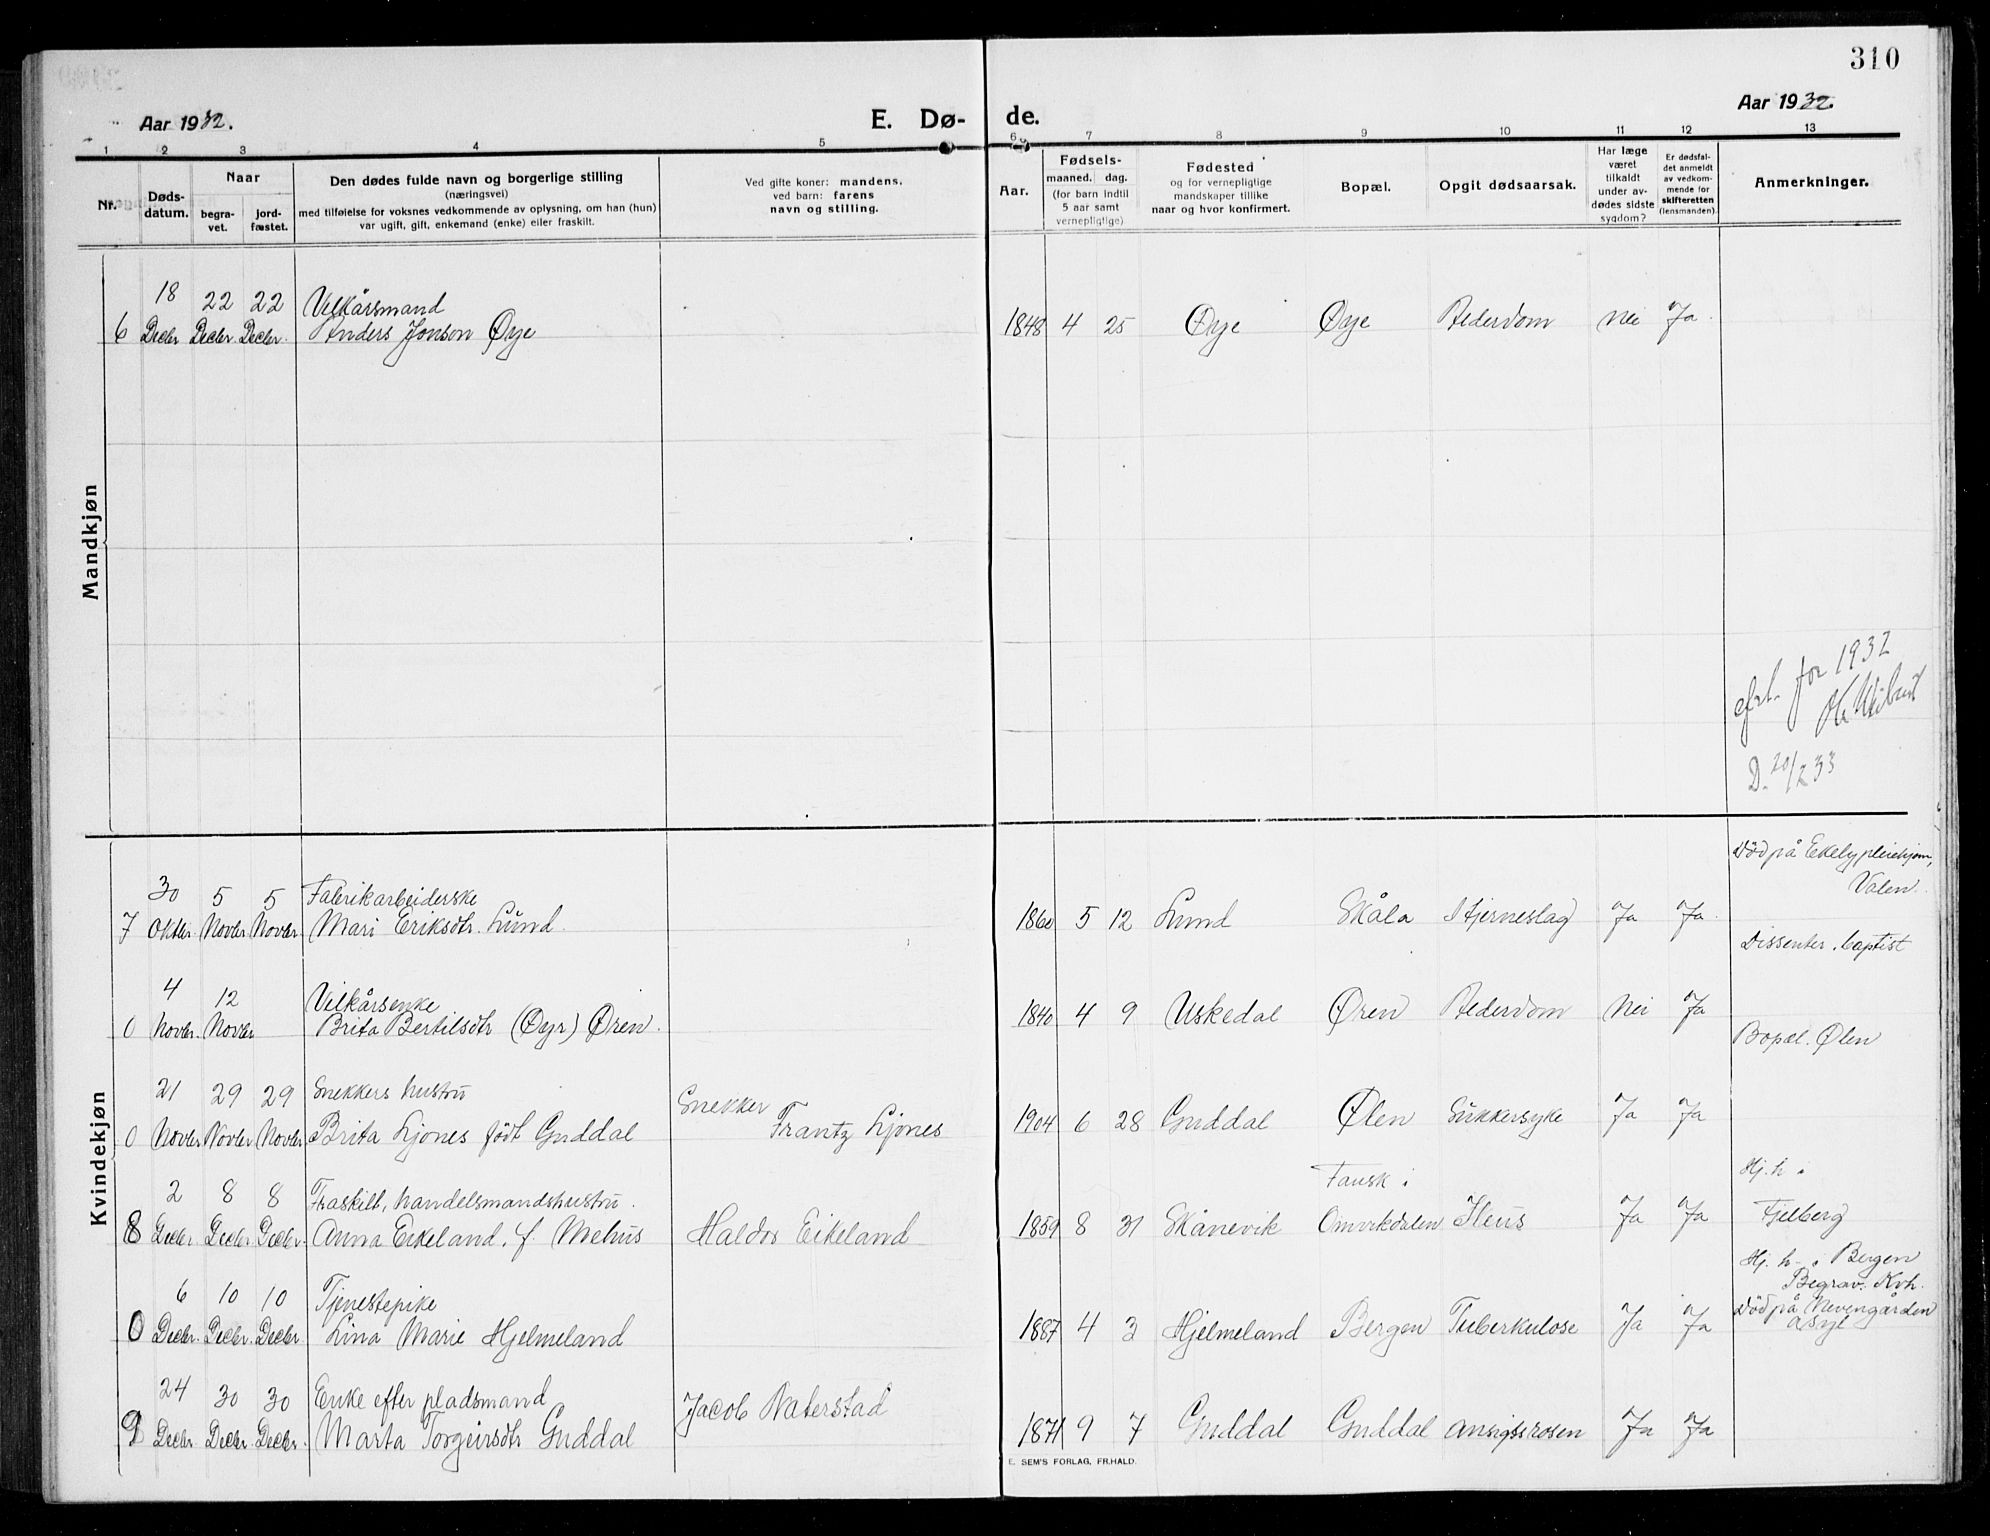 310
Aar 1932.
E. Dø-
de.
Aar 1932.
1 2 3 4 5 6 7 8 9 10 11 12 13
Nr.
Døds-
datum.
Naar
begra-
vet.
jord-
fæstet.
Den dødes fulde navn og borgerlige stilling
(næringsvei)
med tilføielse for voksnes vedkommende av oplysning, om han (hun)
var ugift, gift, enkemand (enke) eller fraskilt.
Ved gifte koner: mandens,
ved barn: farens
navn og stilling.
Aar.
Fødsels-
maaned. dag.
(for barn indtil
5 aar samt
vernepligtige)
Fødested
og for vernepligtige
mandskaper tillike
naar og hvor konfirmert.
Bopæl.
Opgit dødsaarsak.
Har læge
været
tilkaldt
under av-
dødes sidste
sygdom?
Er dødsfal-
det anmeldt
av vedkom-
mende for
skifteretten
(lensmanden).
Anmerkninger.
Mandkjøn
18 22 22 Velkårsmand
6 Decbr Decbr Decbr. Anders Jonson Øye 1848 4 25 Øye Øye Alderdom nei Ja.
for 1932
D. 20/2 33
Kvindekjøn
30 5 5 Fabrikarbeiderske Död på Ekely pleiehjem,
Valen.
7 Oktbr. Novbr Novbr Mari Eriksdtr. Lund. 1860 5 12 Lund Skåla Hjerneslag Ja Ja.
Dissenter. baptist
4 12 Vilkårsenke
0 Novbr. Novbr Brita Bertilsdtr (Øyr) Øren. 1840 4 9 Uskedal Øren Alderdom Nei Ja
Bopæl. Ølen
21 29 29 Snekkers hustru Snekker
0 Novbr Novbr Novbr Brita Ljones födt Guddal Frantz Ljones 1904 6 28 Guddal Ølen Sukkersyke Ja Ja
2 8 8 Fraskilt, handelsmandshustru. Fausk i Hj. h i
8 Decbr. Decbr Decbr. Anna Eikeland, f. Mehus Haldor Eikeland 1859 8 31 Skånevik Omvikdalen Ileus Ja Ja Fjelberg
Hj. h. i Bergen
Begrav. Kvh.
6 10 10 Tjenestepike Död på Nevengården
asyl
0 Decbr. Decbr. Decbr Lina Marie Hjelmeland 1887 4 3 Hjelmeland Bergen Tuberkulose Ja Ja
24 30 30 Enke efter pladsmand Jacob Naterstad
9 Decbr Decbr Decbr. Marta Torgeirsdtr Guddal 1871 9 7 Guddal Guddal Ansigtsrosen Ja Ja
E. SEM'S FORLAG, FR.HALD.